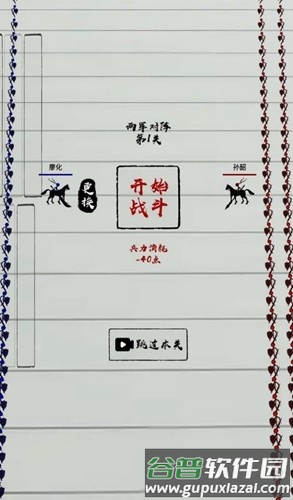 两军对阵
第1关
廖化
更换
开始
战斗
孙韶
兵力消耗
-40点
跳过本关
谷普软件园
www.gupuxiazai.com